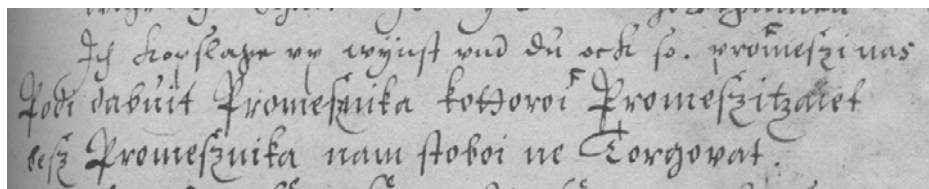 Ich kopslage vp wynst vnd du ock so. promeszi nas
Podi dabuit Promesznika kottoroi Promeszitzaiet
besz Promesznika nam stoboi ne Torgovat.